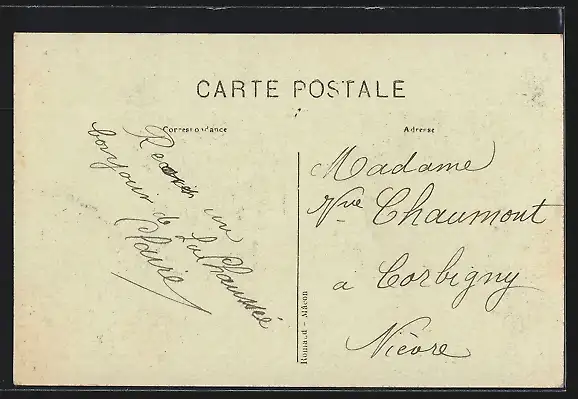 CARTE POSTALE
Correspondance
Adresse
Recois un
bonjour de La Chaussée
Claire
Madame
Vve Chaumont
à Corbigny
Nièvre
Romand - Mâcon